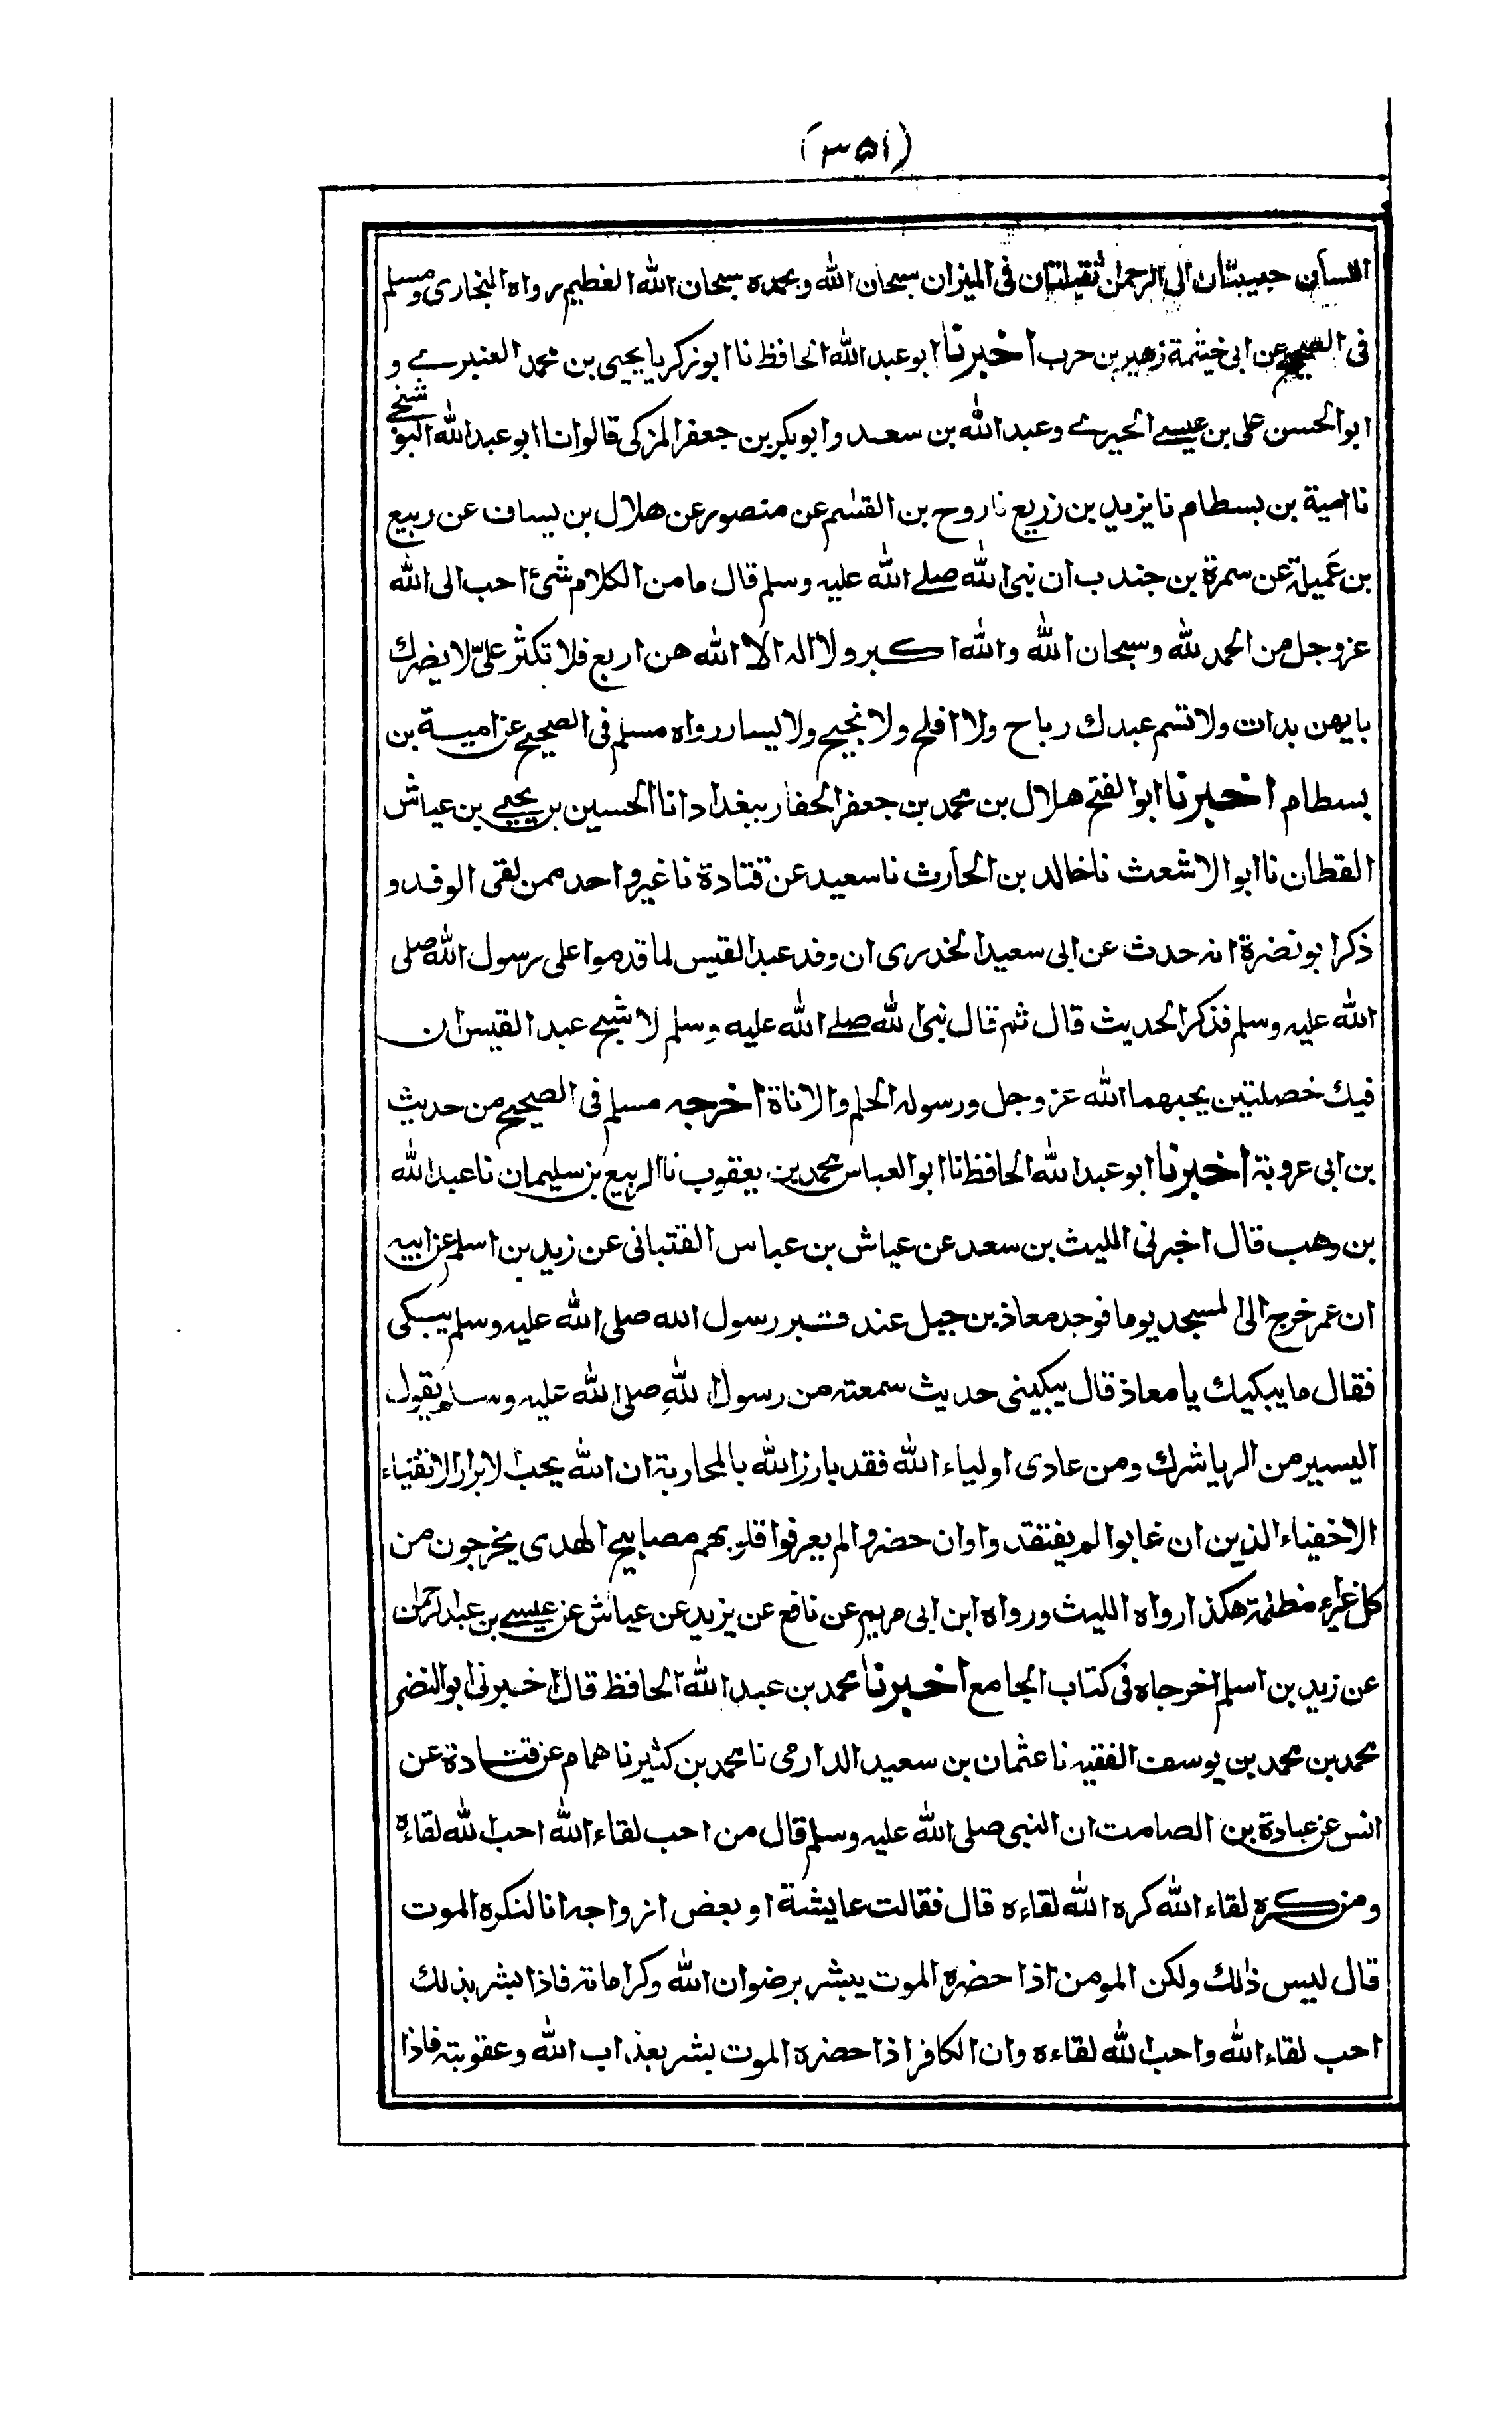 (۳۵۱)
اللسان حبيبتان الى الرحمن ثقيلتان فى الميزان سبحان الله وبحمده سبحان الله العظيم رواه البخارى ومسلم
فى الصحيح عن ابى خيثمة زهير بن حرب اخبرنا ابو عبد الله الحافظ نا ابو زكريا يحيى بن محمد العنبرے و
ابو الحسن على بن عيسے الحيرے وعبد الله بن سعد وابوبكر بن جعفر المزكى قالوا نا ابو عبد الله البوشنجے
نا امية بن بسطام نا يزيد بن زريع نا روح بن القٰسم عن منصور عن هلال بن يساف عن ربيع
بن عَميلة عن سمرة بن جندب ان نبى الله صلے الله عليه وسلم قال ما من الكلام شئ احب الى الله
عزوجل من الحمد لله وسبحان الله والله اكبر ولا اله الا الله هن اربع فلا تكثر علىّ لا يضرك
بايهن بدات ولا تسم عبدك رباح ولا افلح ولا نجيح ولا يسار رواه مسلم فى الصحيح عن امية بن
بسطام اخبرنا ابو الفتح هلال بن محمد بن جعفر الحفار ببغداد انا الحسين بن يحيے بن عياش
القطان نا ابو الاشعث نا خالد بن الحارث نا سعيد عن قتادة نا غير واحد ممن لقى الوفد و
ذكر ابو نضرة انه حدث عن ابى سعيد الخدرى ان وفد عبد القيس لما قدموا على رسول الله صلى
الله عليه وسلم فذكر الحديث قال ثم قال نبى الله صلے الله عليه وسلم لاشج عبد القيس ان
فيك خصلتين يحبهما الله عزوجل ورسوله الحلم والاناة اخرجه مسلم فى الصحيح من حديث
بن ابى عروبة اخبرنا ابو عبد الله الحافظ نا ابو العباس محمد بن يعقوب نا الربيع بن سليمان نا عبد الله
بن وهب قال اخبرنى الليث بن سعد عن عياش بن عباس القتبانى عن زيد بن اسلم عن ابيه
ان عمر خرج الى المسجد يوما فوجد معاذ بن جبل عند قبر رسول الله صلى الله عليه وسلم يبكى
فقال ما يبكيك يا معاذ قال يبكينى حديث سمعته من رسول الله صلى الله عليه وسلم يقول
اليسير من الريا شرك ومن عادى اولياء الله فقد بارز الله بالمحاربة ان الله يحب الابرار الاتقياء
الاخفياء الذين ان غابوا لم يفتقدوا وان حضروا لم يعرفوا قلوبهم مصابيح الهدى يخرجون من
كل غبراء مظلمة هكذا رواه الليث ورواه ابن ابى مريم عن نافع عن يزيد عن عياش عن عيسے بن عبد الرحمن
عن زيد بن اسلم اخرجاه فى كتاب الجامع اخبرنا محمد بن عبد الله الحافظ قال اخبرنى ابو النضر
محمد بن محمد بن يوسف الفقيه نا عثمان بن سعيد الدارمى نا محمد بن كثير نا همام عن قتادة عن
انس عن عبادة بن الصامت ان النبى صلى الله عليه وسلم قال من احب لقاء الله احب الله لقاءه
ومن كره لقاء الله كره الله لقاءه قال فقالت عايشة او بعض ازواجه انا لنكره الموت
قال ليس ذلك ولكن المومن اذا حضره الموت يبشر برضوان الله وكرامته فاذا بشر بذلك
احب لقاء الله واحب الله لقاءه وان الكافر اذا حضره الموت بشر بعذاب الله وعقوبته فاذا